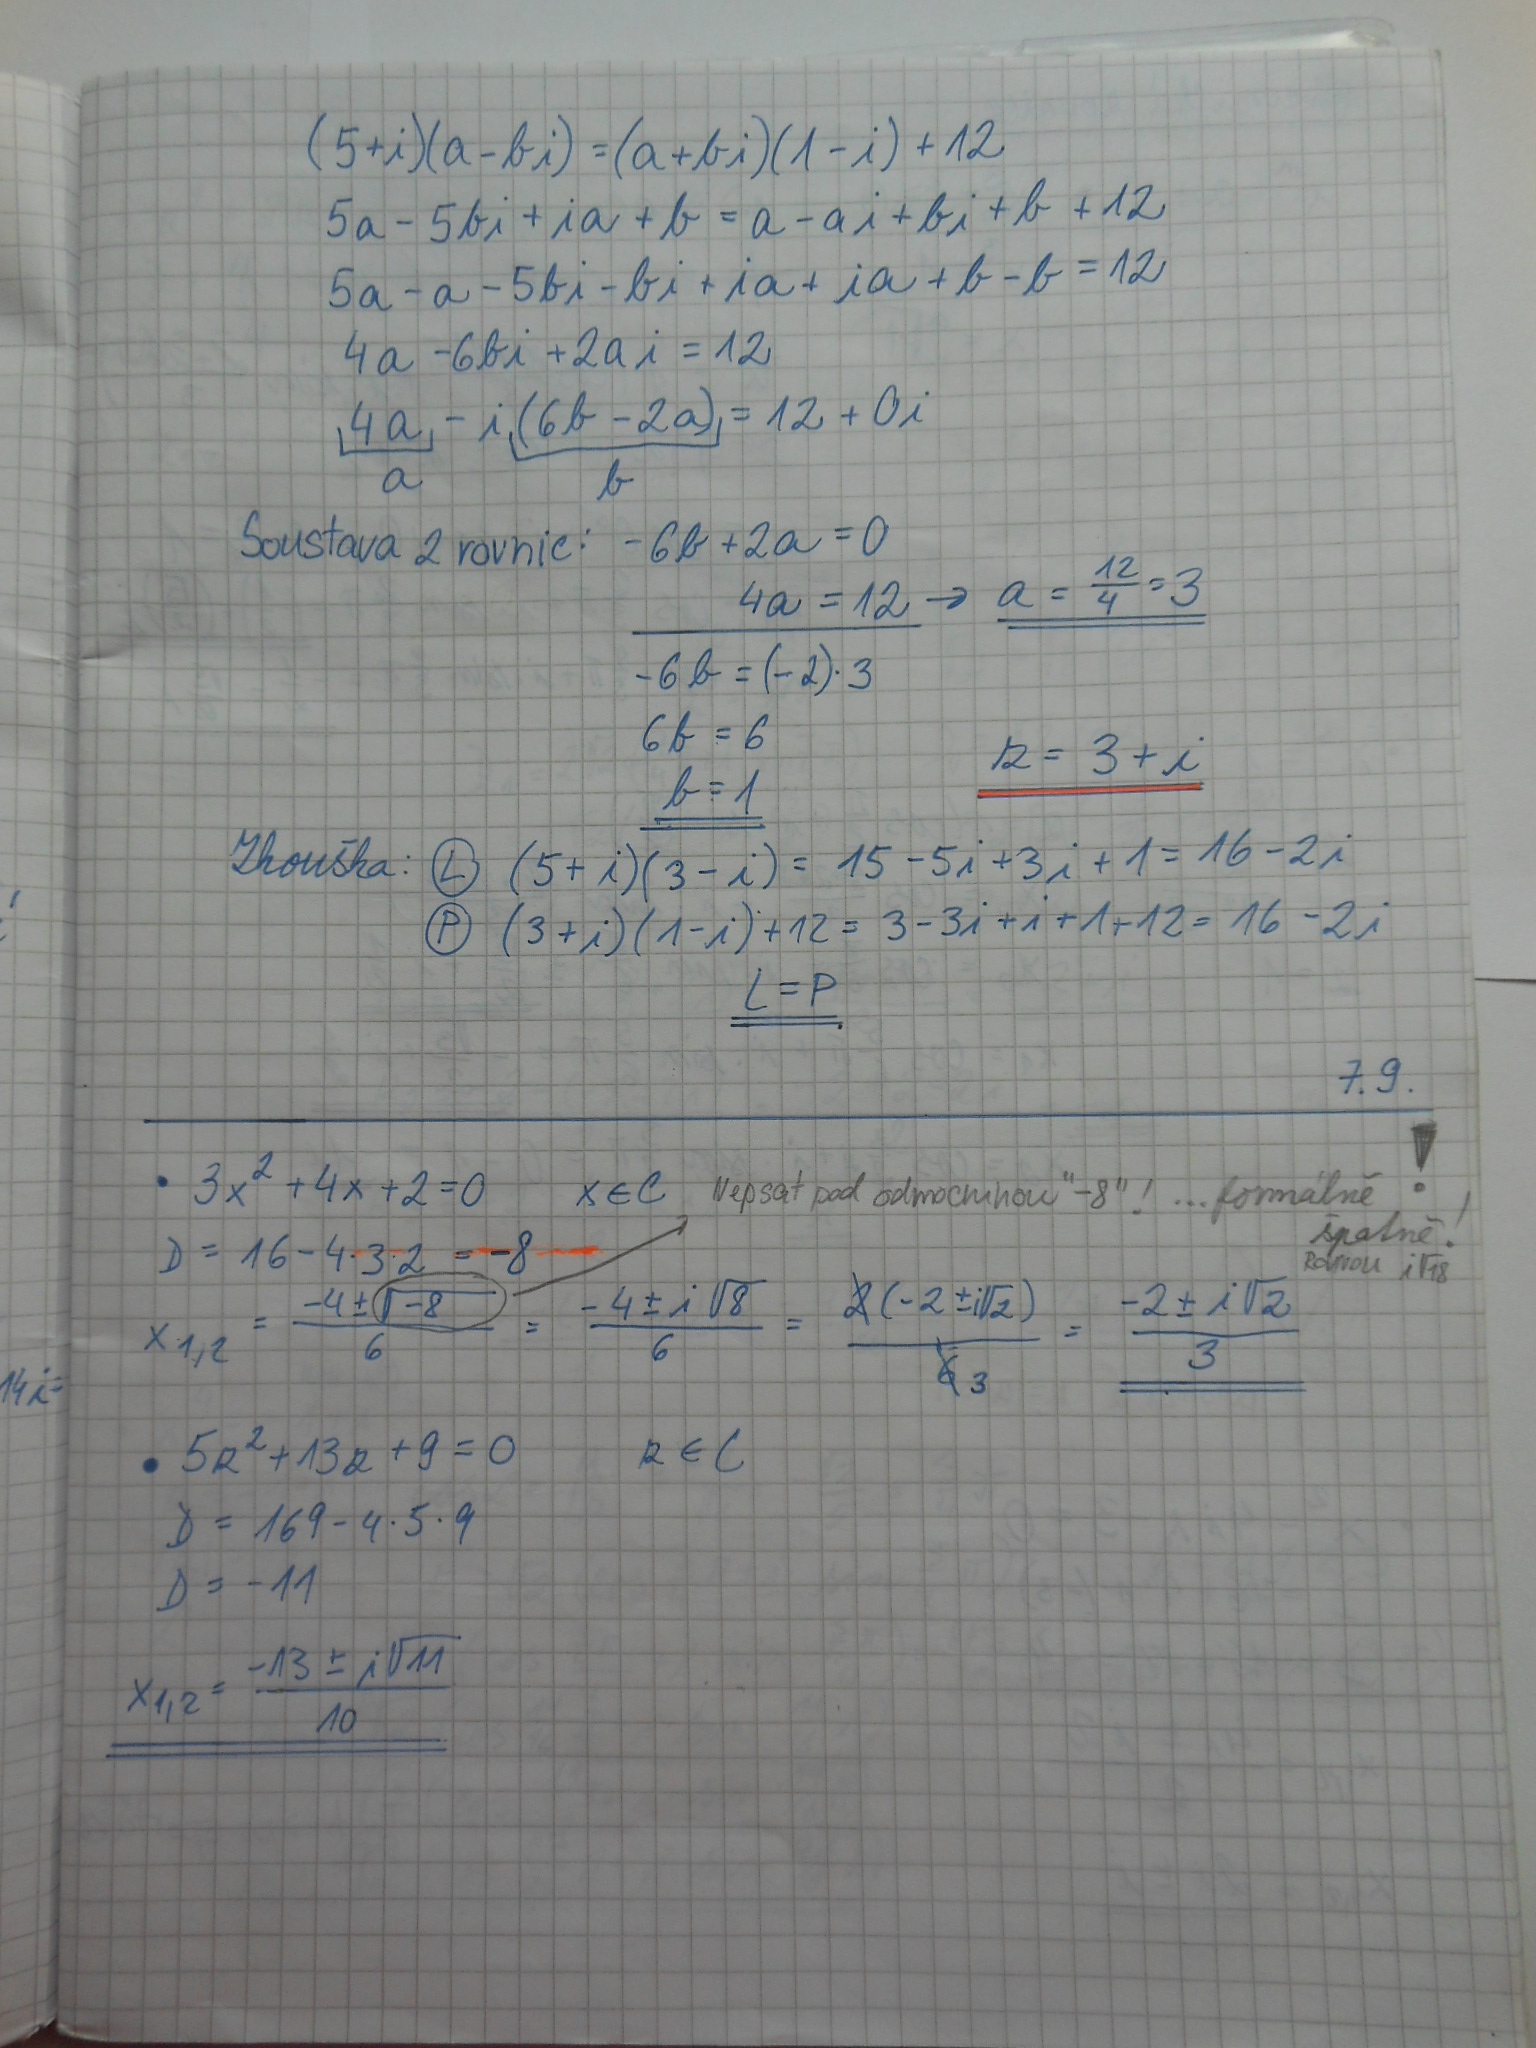 (5+i)(a-bi) = (a+bi)(1-i) + 12
5a - 5bi + ia + b = a - ai + bi + b + 12
5a - a - 5bi - bi + ia + ia + b - b = 12
4a - 6bi + 2ai = 12
4a - i(6b - 2a) = 12 + 0i
a b
Soustava 2 rovnic: -6b + 2a = 0
4a = 12 → a = 12/4 = 3
-6b = (-2)·3
6b = 6
z = 3 + i
b = 1
Zkouška: L (5+i)(3-i) = 15 - 5i + 3i + 1 = 16 - 2i
P (3+i)(1-i)+12 = 3 - 3i + i + 1 + 12 = 16 - 2i
L = P
7.9.
• 3x² + 4x + 2 = 0 x ∈ C Nepsat pod odmocninou "-8"! ... formálně !
špatně!
D = 16 - 4·3·2 = -8
Rovnou i√8
x1,2 = (-4 ± √-8)/6 = (-4 ± i√8)/6 = 2(-2 ± i√2)/6 3 = (-2 ± i√2)/3
14i=
• 5z² + 13z + 9 = 0 z ∈ C
D = 169 - 4·5·9
D = -11
x1,2 = (-13 ± i√11)/10